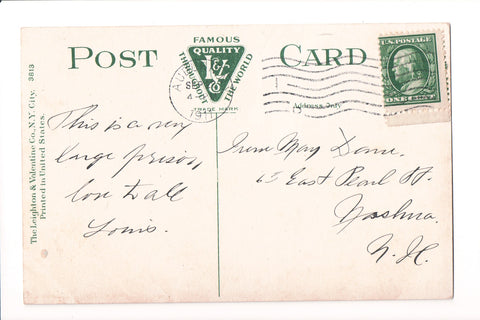 POST CARD
FAMOUS
QUALITY
THROUGHOUT THE WORLD
L&V Co
TRADE MARK
AU
SEP
4
1911
U.S. POSTAGE
ONE CENT
Address Only
The Leighton & Valentine Co., N.Y. City.
Printed in United States.
3613
This is a very
large prison,
love to all
Louis.
Irene May Dome.
65 East Pearl St.
Nashua.
N. H.